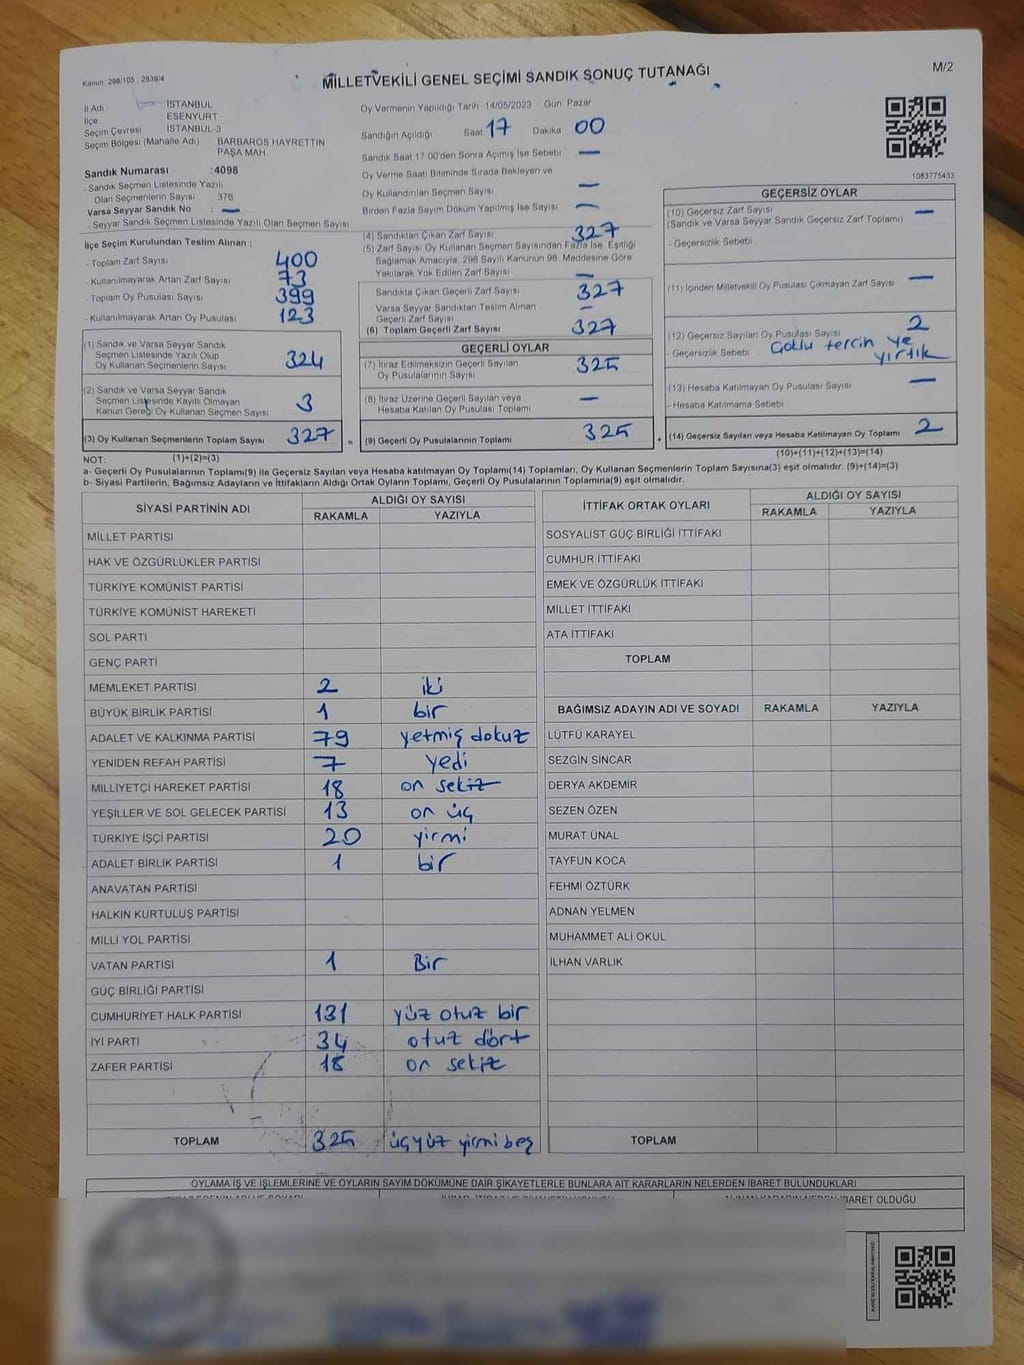 Kanun, 298/105 : 2839/4
MİLLETVEKİLİ GENEL SEÇİMİ SANDIK SONUÇ TUTANAĞI
M/2
İl Adı : İSTANBUL
İlçe ESENYURT
Seçim Çevresi İSTANBUL-3
Seçim Bölgesi (Mahalle Adı) BARBAROS HAYRETTİN
PAŞA MAH
Sandık Numarası :4098
- Sandık Seçmen Listesinde Yazılı
Olan Seçmenlerin Sayısı 376
Varsa Seyyar Sandık No : —
- Seyyar Sandık Seçmen Listesinde Yazılı Olan Seçmen Sayısı
Oy Vermenin Yapıldığı Tarih 14/05/2023 Gün Pazar
Sandığın Açıldığı Saat 17 Dakika 00
Sandık Saat 17:00'den Sonra Açımış İse Sebebi —
Oy Verme Saati Bitiminde Sırada Bekleyen ve
Oy Kullandırılan Seçmen Sayısı —
Birden Fazla Sayım Döküm Yapılmış İse Sayısı —
1083775433
İlçe Seçim Kurulundan Teslim Alınan ;
- Toplam Zarf Sayısı 400
- Kullanılmayarak Artan Zarf Sayısı 73
- Toplam Oy Pusulası Sayısı 399
- Kullanılmayarak Artan Oy Pusulası 123
(1) Sandık ve Varsa Seyyar Sandık
Seçmen Listesinde Yazılı Olup
Oy Kullanan Seçmenlerin Sayısı 324
(2) Sandık ve Varsa Seyyar Sandık
Seçmen Listesinde Kayıtlı Olmayan
Kanun Gereği Oy Kullanan Seçmen Sayısı 3
(3) Oy Kullanan Seçmenlerin Toplam Sayısı 327 =
(4) Sandıktan Çıkan Zarf Sayısı 327
(5) Zarf Sayısı Oy Kullanan Seçmen Sayısından Fazla İse, Eşitliği
Sağlamak Amacıyla, 298 Sayılı Kanunun 98. Maddesine Göre
Yakılarak Yok Edilen Zarf Sayısı —
Sandıkta Çıkan Geçerli Zarf Sayısı 327
Varsa Seyyar Sandıktan Teslim Alınan
Geçerli Zarf Sayısı —
(6) Toplam Geçerli Zarf Sayısı 327
GEÇERLİ OYLAR
(7) İtiraz Edilmeksizin Geçerli Sayılan
Oy Pusulalarının Sayısı 325
(8) İtiraz Üzerine Geçerli Sayılan veya
Hesaba Katılan Oy Pusulası Toplamı —
(9) Geçerli Oy Pusulalarının Toplamı 325 +
GEÇERSİZ OYLAR
(10) Geçersiz Zarf Sayısı —
(Sandık ve Varsa Seyyar Sandık Geçersiz Zarf Toplamı)
- Geçersizlik Sebebi
(11) İçinden Milletvekili Oy Pusulası Çıkmayan Zarf Sayısı —
(12) Geçersiz Sayılan Oy Pusulası Sayısı 2
- Geçersizlik Sebebi Çoklu tercih ve
yırtık
(13) Hesaba Katılmayan Oy Pusulası Sayısı —
- Hesaba Katılmama Sebebi
(14) Geçersiz Sayılan veya Hesaba Katılmayan Oy Toplamı 2
NOT: (1)+(2)=(3) (10)+(11)+(12)+(13)=(14)
a- Geçerli Oy Pusulalarının Toplamı(9) ile Geçersiz Sayılan veya Hesaba katılmayan Oy Toplamı(14) Toplamları, Oy Kullanan Seçmenlerin Toplam Sayısına(3) eşit olmalıdır. (9)+(14)=(3)
b- Siyasi Partilerin, Bağımsız Adayların ve İttifakların Aldığı Ortak Oyların Toplamı, Geçerli Oy Pusulalarının Toplamına(9) eşit olmalıdır.
SİYASİ PARTİNİN ADI ALDIĞI OY SAYISI
RAKAMLA YAZIYLA
MİLLET PARTİSİ
HAK VE ÖZGÜRLÜKLER PARTİSİ
TÜRKİYE KOMÜNİST PARTİSİ
TÜRKİYE KOMÜNİST HAREKETİ
SOL PARTİ
GENÇ PARTİ
MEMLEKET PARTİSİ 2 iki
BÜYÜK BİRLİK PARTİSİ 1 bir
ADALET VE KALKINMA PARTİSİ 79 yetmiş dokuz
YENİDEN REFAH PARTİSİ 7 yedi
MİLLİYETÇİ HAREKET PARTİSİ 18 on sekiz
YEŞİLLER VE SOL GELECEK PARTİSİ 13 on üç
TÜRKİYE İŞÇİ PARTİSİ 20 yirmi
ADALET BİRLİK PARTİSİ 1 bir
ANAVATAN PARTİSİ
HALKIN KURTULUŞ PARTİSİ
MİLLİ YOL PARTİSİ
VATAN PARTİSİ 1 Bir
GÜÇ BİRLİĞİ PARTİSİ
CUMHURİYET HALK PARTİSİ 131 yüz otuz bir
İYİ PARTİ 34 otuz dört
ZAFER PARTİSİ 18 on sekiz
TOPLAM 325 üçyüz yirmi beş
İTTİFAK ORTAK OYLARI ALDIĞI OY SAYISI
RAKAMLA YAZIYLA
SOSYALİST GÜÇ BİRLİĞİ İTTİFAKI
CUMHUR İTTİFAKI
EMEK VE ÖZGÜRLÜK İTTİFAKI
MİLLET İTTİFAKI
ATA İTTİFAKI
TOPLAM
BAĞIMSIZ ADAYIN ADI VE SOYADI RAKAMLA YAZIYLA
LÜTFÜ KARAYEL
SEZGİN SİNCAR
DERYA AKDEMİR
SEZEN ÖZEN
MURAT ÜNAL
TAYFUN KOCA
FEHMİ ÖZTÜRK
ADNAN YELMEN
MUHAMMET ALİ OKUL
İLHAN VARLIK
TOPLAM
OYLAMA İŞ VE İŞLEMLERİNE VE OYLARIN SAYIM DÖKÜMÜNE DAİR ŞİKAYETLERLE BUNLARA AİT KARARLARIN NELERDEN İBARET BULUNDUKLARI